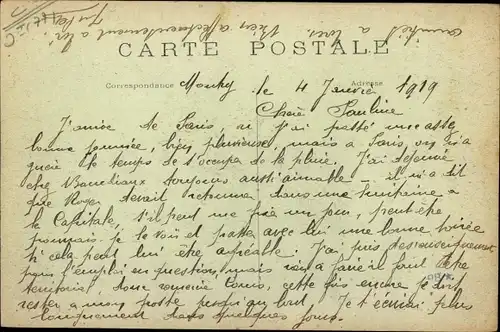 amitiés à tous. Bien affectueusement à toi
CARTE POSTALE
Correspondance Mouhy, le 4 Janvier 1919 Adresse
Chère Pauline
J'arrive de Paris, où j'ai passé une assez
bonne journée, bien pluvieuse, mais à Paris, on n'a
guère le temps de s'occuper de la pluie. J'ai déjeuné
chez toujours aussi aimable - il m'a dit
que Roger devait retourner dans une huitaine à
la Capitale, s'il peut me fixer un jour, peut-être
pourrais-je le voir et passer avec lui une bonne soirée
si cela peut lui être agréable. J'ai pris des renseignements
pour l'emploi en question, mais rien à faire il faut être
territorial, donc remercie Louis, cette fois encore je dois
rester à mon poste jusqu'au bout. Je t'écrirai plus
longuement dans quelques jours.